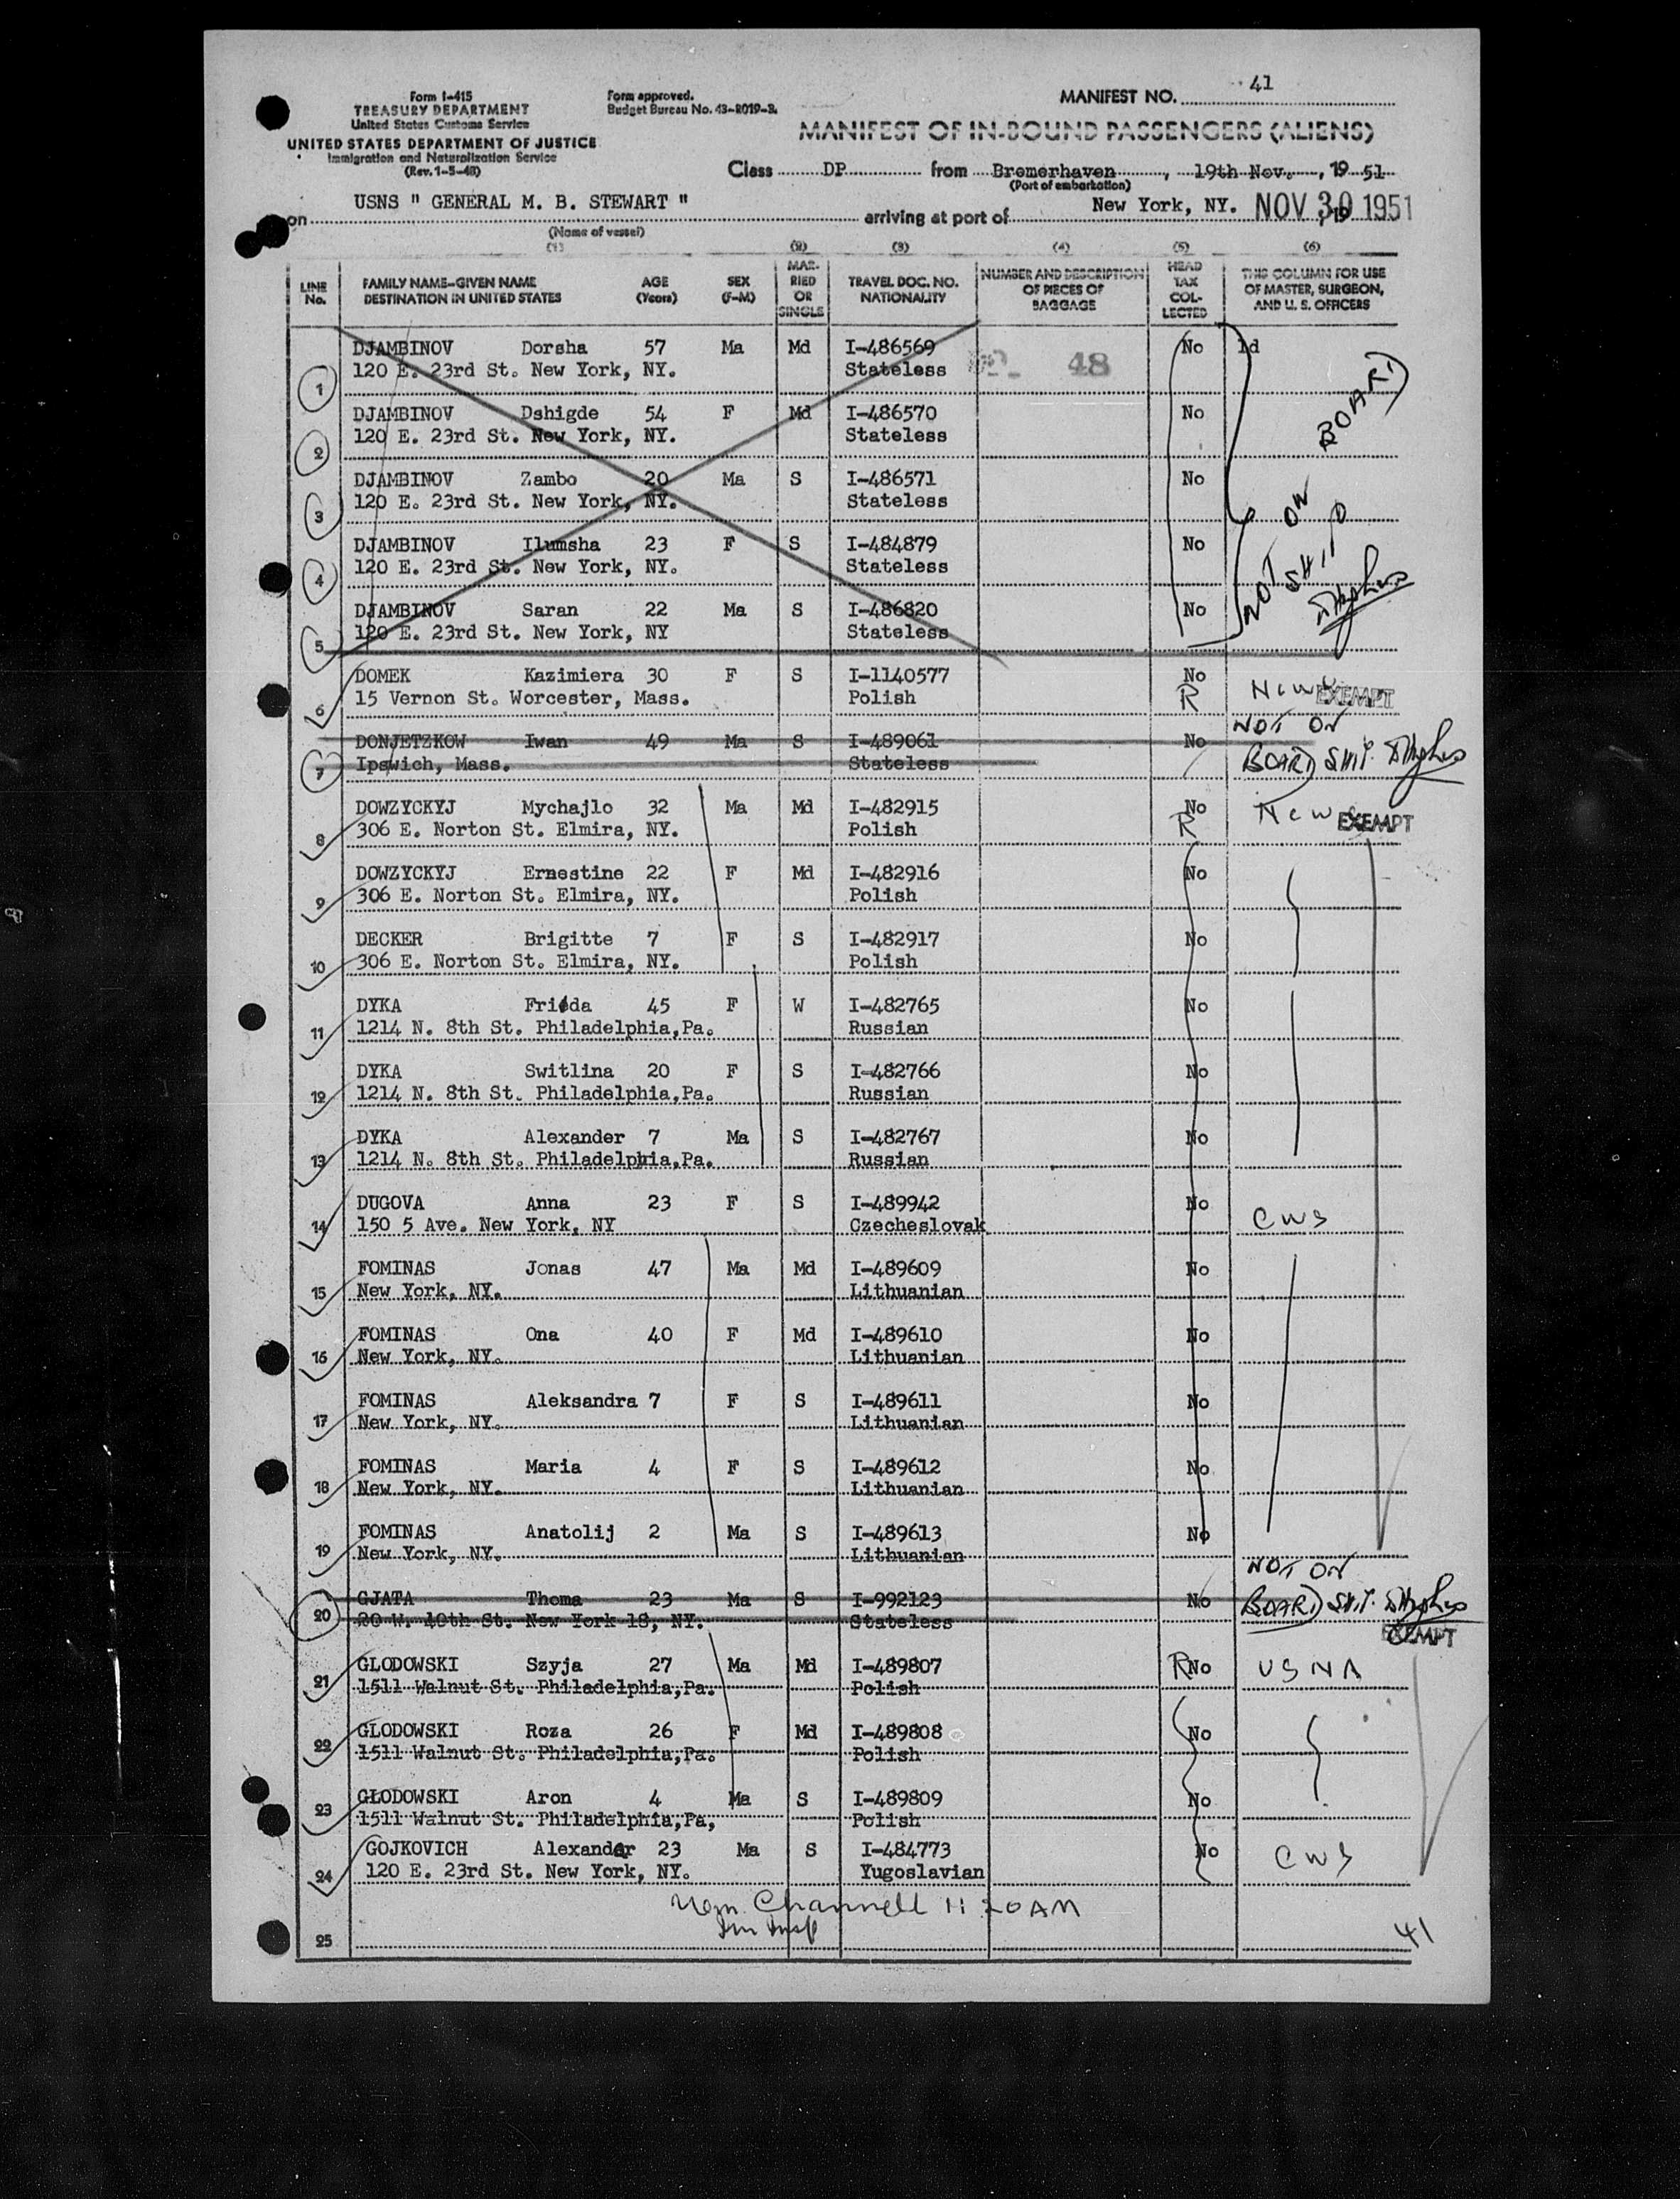 Form I-415
TREASURY DEPARTMENT
United States Customs Service
UNITED STATES DEPARTMENT OF JUSTICE
Immigration and Naturalization Service
(Rev. 1-5-48)
Form approved.
Budget Bureau No. 43-R019-3.
MANIFEST NO. 41
MANIFEST OF IN-BOUND PASSENGERS (ALIENS)
Class DP from Bremerhaven, 19th Nov., 1951
(Port of embarkation)
on USNS " GENERAL M. B. STEWART " arriving at port of New York, NY. NOV 30 1951
(Name of vessel)
(1) (2) (3) (4) (5) (6)
LINE No. FAMILY NAME-GIVEN NAME DESTINATION IN UNITED STATES AGE (Years) SEX (F-M) MARRIED OR SINGLE TRAVEL DOC. NO. NATIONALITY NUMBER AND DESCRIPTION OF PIECES OF BAGGAGE HEAD TAX COLLECTED THIS COLUMN FOR USE OF MASTER, SURGEON, AND U. S. OFFICERS
1 DJAMBINOV Dorsha 57 Ma Md I-486569 48 No
120 E. 23rd St. New York, NY. Stateless
2 DJAMBINOV Dshigde 54 F Md I-486570 No
120 E. 23rd St. New York, NY. Stateless
3 DJAMBINOV Zambo 20 Ma S I-486571 No
120 E. 23rd St. New York, NY. Stateless
4 DJAMBINOV Ilumsha 23 F S I-484879 No
120 E. 23rd St. New York, NY. Stateless
5 DJAMBINOV Saran 22 Ma S I-486820 No
120 E. 23rd St. New York, NY Stateless
NOT ON BOARD SHIP
6 DOMEK Kazimiera 30 F S I-1140577 No
15 Vernon St. Worcester, Mass. Polish R NCWC EXEMPT
7 DONJETZKOW Iwan 49 Ma S I-489061 No NOT ON
Ipswich, Mass. Stateless BOARD SHIP
8 DOWZYCKYJ Mychajlo 32 Ma Md I-482915 No NCWC EXEMPT
306 E. Norton St. Elmira, NY. Polish R
9 DOWZYCKYJ Ernestine 22 F Md I-482916 No
306 E. Norton St. Elmira, NY. Polish
10 DECKER Brigitte 7 F S I-482917 No
306 E. Norton St. Elmira, NY. Polish
11 DYKA Frieda 45 F W I-482765 No
1214 N. 8th St. Philadelphia,Pa. Russian
12 DYKA Switlina 20 F S I-482766 No
1214 N. 8th St. Philadelphia,Pa. Russian
13 DYKA Alexander 7 Ma S I-482767 No
1214 N. 8th St. Philadelphia,Pa. Russian
14 DUGOVA Anna 23 F S I-489942 No CWS
150 5 Ave. New York, NY Czecheslovak
15 FOMINAS Jonas 47 Ma Md I-489609 No
New York, NY. Lithuanian
16 FOMINAS Ona 40 F Md I-489610 No
New York, NY. Lithuanian
17 FOMINAS Aleksandra 7 F S I-489611 No
New York, NY. Lithuanian
18 FOMINAS Maria 4 F S I-489612 No
New York, NY. Lithuanian
19 FOMINAS Anatolij 2 Ma S I-489613 No
New York, NY. Lithuanian
20 GJATA Thoma 23 Ma S I-992123 No NOT ON
20 W. 40th St. New York 18, NY. Stateless BOARD SHIP
EXEMPT
21 GLODOWSKI Szyja 27 Ma Md I-489807 R No USNA
1511 Walnut St. Philadelphia,Pa. Polish
22 GLODOWSKI Roza 26 F Md I-489808 No
1511 Walnut St. Philadelphia,Pa. Polish
23 GLODOWSKI Aron 4 Ma S I-489809 No
1511 Walnut St. Philadelphia,Pa, Polish
24 GOJKOVICH Alexander 23 Ma S I-484773 No CWS
120 E. 23rd St. New York, NY. Yugoslavian
Wm. Channell 11:20 AM
Im Insp
25
41